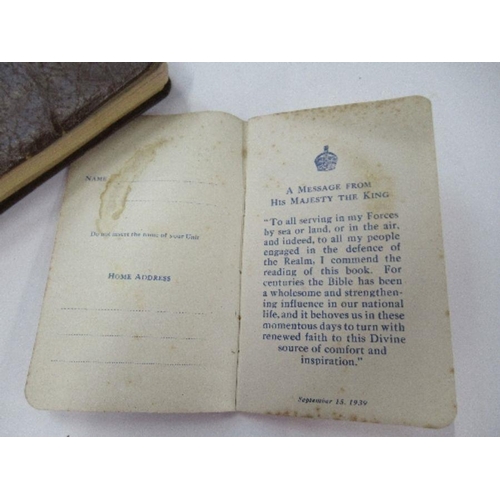 NAME
Do not insert the name of your Unit
HOME ADDRESS
A MESSAGE FROM
HIS MAJESTY THE KING
"To all serving in my Forces
by sea or land, or in the air,
and indeed, to all my people
engaged in the defence of
the Realm, I commend the
reading of this book. For
centuries the Bible has been
a wholesome and strengthen-
ing influence in our national
life, and it behoves us in these
momentous days to turn with
renewed faith to this Divine
source of comfort and
inspiration."
September 15, 1939